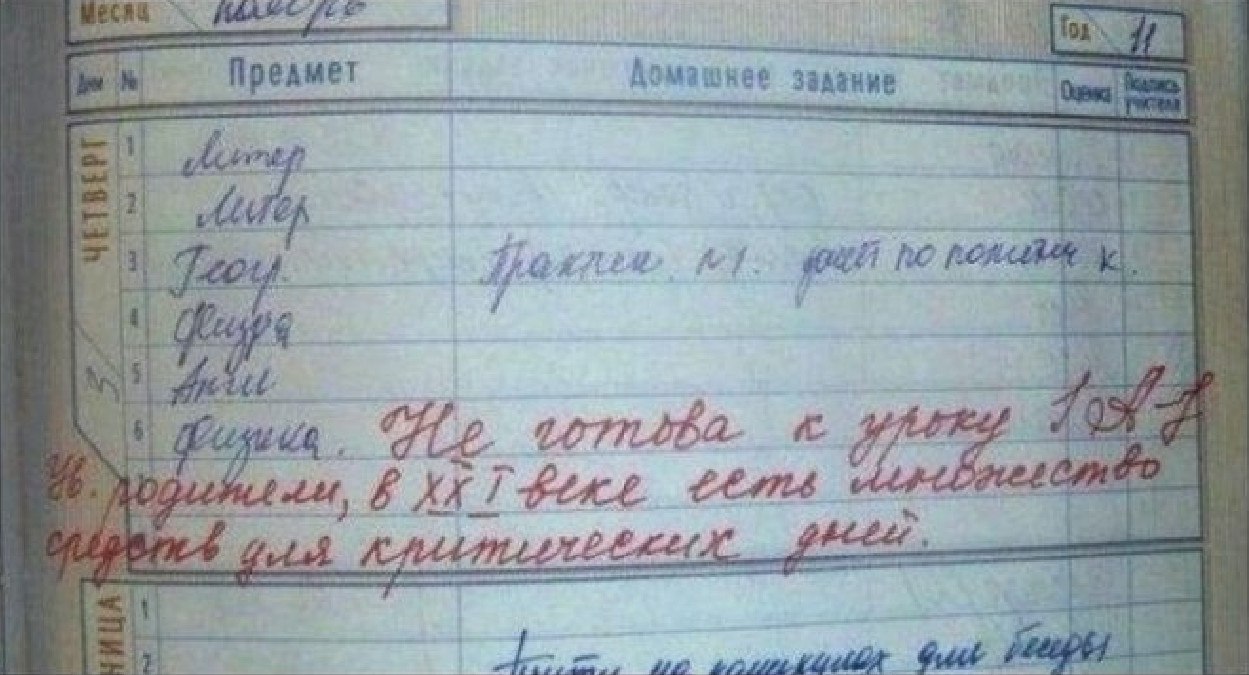 Месяц ноябрь
Год 11
Дни № Предмет Домашнее задание Оценка Подпись учителя
ЧЕТВЕРГ 3
1 Литер
2 Литер
3 Геогр. Практич. №1. по политич к.
4 Физра
5 Англ
6 Физика. Не готова к уроку
Ув. родители, в XXI веке есть множество
средств для критических дней.
НИЦА
1
2 на каникулах для беседы